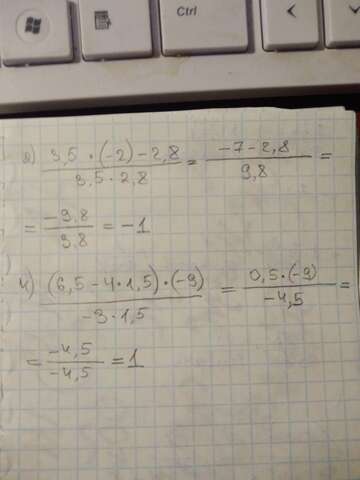 Ctrl
<
2) (3,5 · (-2) - 2,8) / (3,5 · 2,8) = (-7 - 2,8) / 9,8 =
= (-9,8) / 9,8 = -1
4) ((6,5 - 4 · 1,5) · (-9)) / (-3 · 1,5) = (0,5 · (-9)) / (-4,5) =
= (-4,5) / (-4,5) = 1